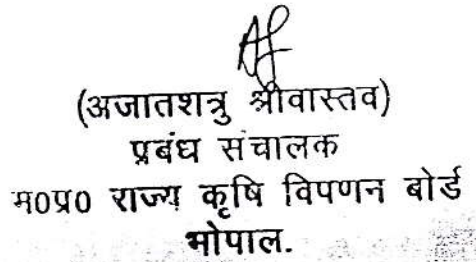 (अजातशत्रु श्रीवास्तव)
प्रबंध संचालक
म0प्र0 राज्य कृषि विपणन बोर्ड
भोपाल.